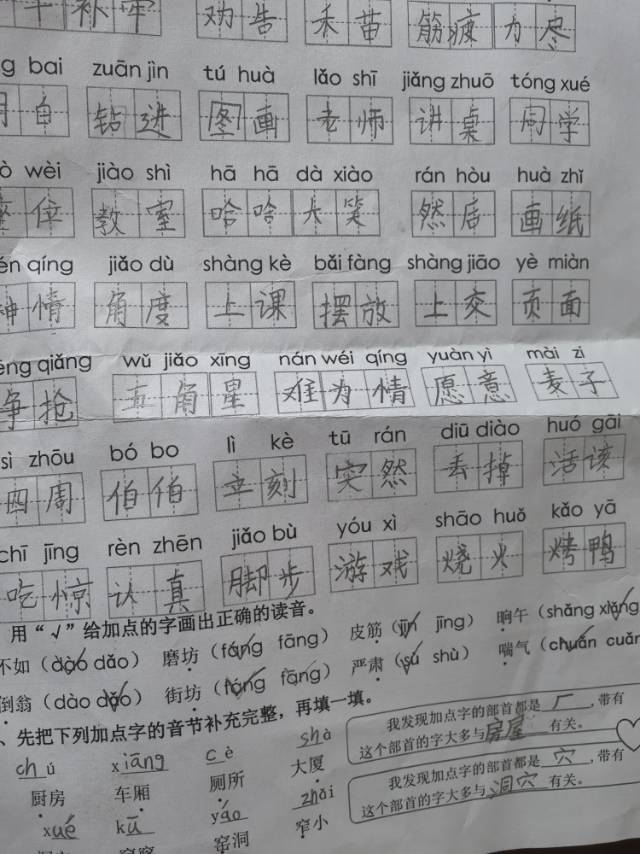 补牢 劝告 禾苗 筋疲力尽
g bai zuān jìn tú huà lǎo shī jiǎng zhuō tóng xué
自 钻进 图画 老师 讲桌 同学
ò wèi jiào shì hā hā dà xiào rán hòu huà zhǐ
座位 教室 哈哈大笑 然后 画纸
én qíng jiǎo dù shàng kè bǎi fàng shàng jiāo yè miàn
神情 角度 上课 摆放 上交 页面
ēng qiǎng wǔ jiǎo xīng nán wéi qíng yuàn yì mài zi
争抢 五角星 难为情 愿意 麦子
sì zhōu bó bo lì kè tū rán diū diào huó gāi
四周 伯伯 立刻 突然 丢掉 活该
chī jīng rèn zhēn jiǎo bù yóu xì shāo huǒ kǎo yā
吃惊 认真 脚步 游戏 烧火 烤鸭
用“√”给加点的字画出正确的读音。
不如（dào dǎo） 磨坊（fáng fāng） 皮筋（jīn jīng） 晌午（shǎng xiǎng
倒翁（dào dǎo） 街坊（fáng fāng） 严肃（sù shù） 喘气（chuǎn cuǎn
、先把下列加点字的音节补充完整，再填一填。
chú xiāng cè shà
厨房 车厢 厕所 大厦
xué kū yáo zhǎi
窑洞 窄小
我发现加点字的部首都是厂，带有
这个部首的字大多与房屋有关。
我发现加点字的部首都是穴，带有
这个部首的字大多与洞穴有关。